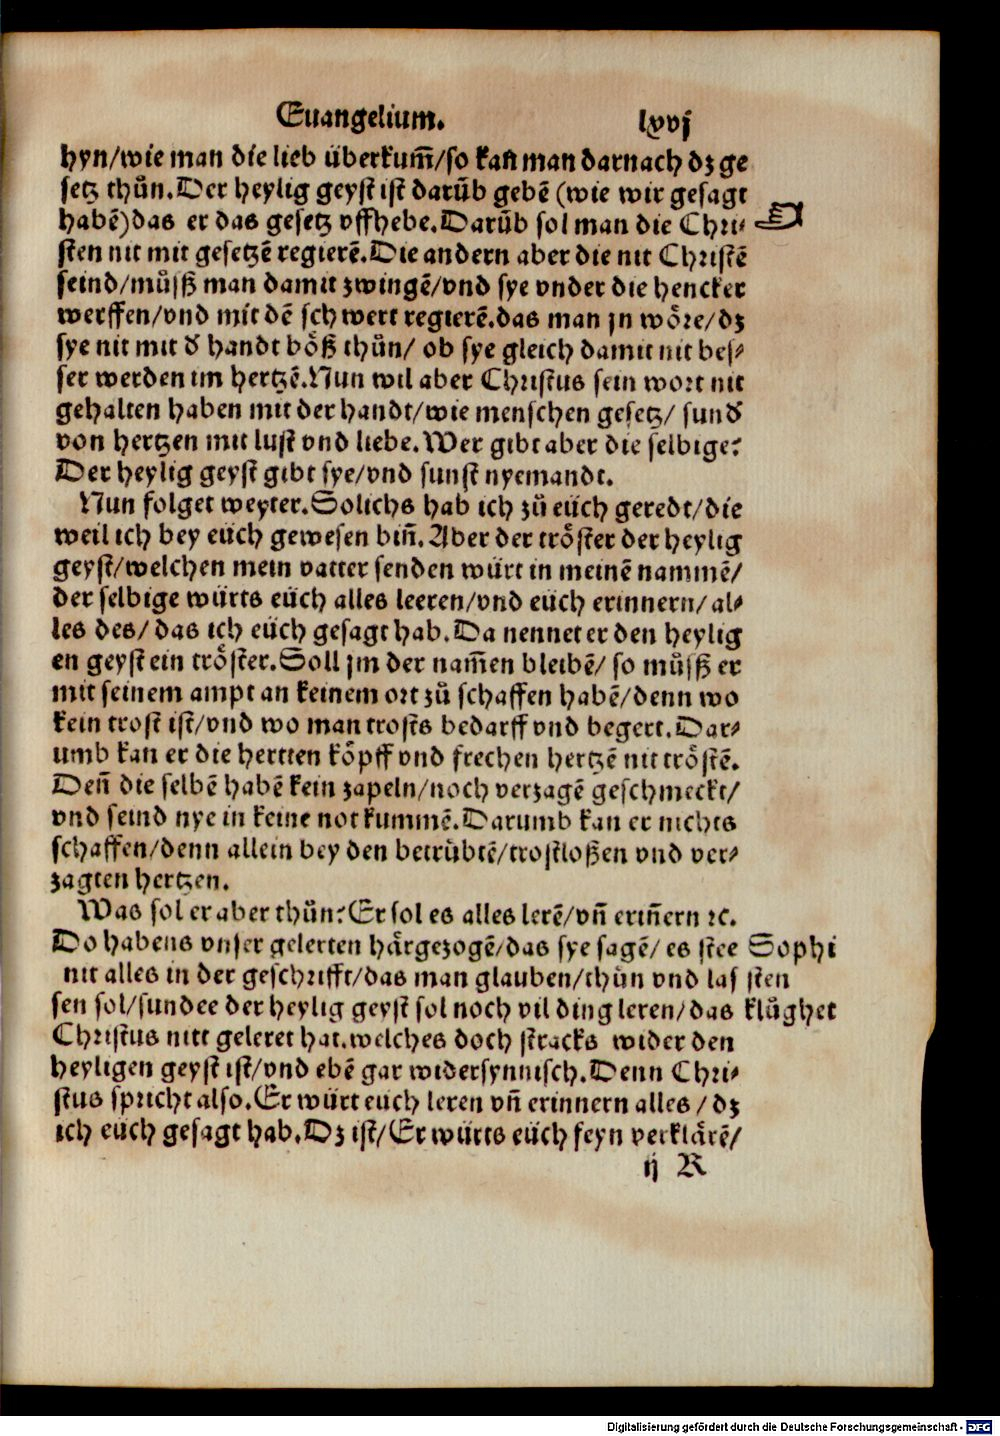 Euangelium. lxvj
hyn/wie man die lieb überkum̃/so kañ man darnach dz ge
setz thůn. Der heylig geyst ist darũb gebẽ (wie wir gesagt
habẽ) das er das gesetz vffhebe. Darũb sol man die Chri⸗
sten nit mit gesetzẽ regierẽ. Die andern aber die nit Christẽ
seind/můſß man damit zwingẽ/vnd sye vnder die hencker
werffen/vnd mit dẽ schwert regierẽ. das man jn wöre/dz
sye nit mit d̕ handt böß thůn/ ob sye gleich damit nit bes⸗
ser werden im hertzẽ. Nun wil aber Christus sein wort nit
gehalten haben mit der handt/wie menschen gesetz/ sund̕
von hertzen mit lust vnd liebe. Wer gibt aber die selbige?
Der heylig geyst gibt sye/vnd sunst nyemandt.
Nun folget weyter. Solichs hab ich zů eüch geredt/die
weil ich bey eüch gewesen biñ. Aber der tröster der heylig
geyst/welchen mein vatter senden würt in meinẽ nammẽ/
der selbige würts eüch alles leeren/vnd eüch erinnern/ al⸗
les des/ das ich eüch gesagt hab. Da nennet er den heylig
en geyst ein tröster. Soll jm der nam̃en bleibẽ/ so můſß er
mit seinem ampt an keinem ort zů schaffen habẽ/denn wo
kein trost ist/vnd wo man trosts bedarff vnd begert. Dar⸗
umb kan er die hertten köpff vnd frechen hertzẽ nit tröstẽ.
Deñ die selbẽ habẽ kein zapeln/noch verzagẽ geschmeckt/
vnd seind nye in keine not kummẽ. Darumb kan er nichts
schaffen/denn allein bey den betrübtẽ/trostloßen vnd ver⸗
zagten hertzen.
Was sol er aber thůn? Er sol es alles lerẽ/vñ eriñern ꝛc.
Do habens vnser gelerten härgezogẽ/das sye sagẽ/ es stee
nit alles in der geschrifft/das man glauben/thůn vnd las
sen sol/sundee der heylig geyst sol noch vil ding leren/das
Christus nitt geleret hat. welches doch stracks wider den
heyligen geyst ist/vnd ebẽ gar widersynnisch. Denn Chri⸗
stus spricht also. Er würt euch leren vñ erinnern alles / dz
ich eüch gesagt hab. Dz ist/ Er würts eüch feyn verklärẽ/
Sophi
sten
klůghet
ij R
Digitalisierung gefördert durch die Deutsche Forschungsgemeinschaft - DFG